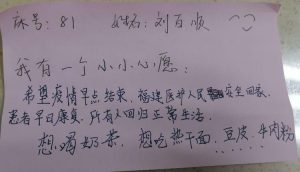 床号：81 姓名：刘百顺
我有一个小小心愿：
希望疫情早点结束，福建医护人民安全回家，
患者早日康复，所有人回归正常生活。
想喝奶茶，想吃热干面，豆皮，牛肉粉
......